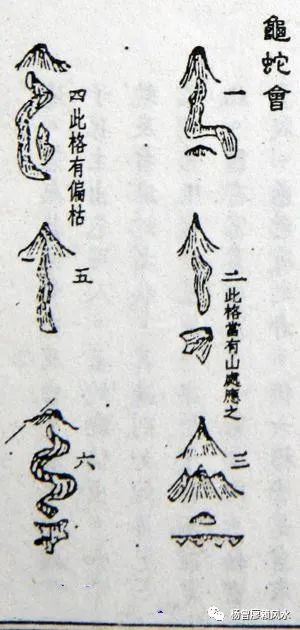 龜蛇會
一
二此格當有山處應之
三
四此格有偏枯
五
六
杨曾廖赖风水